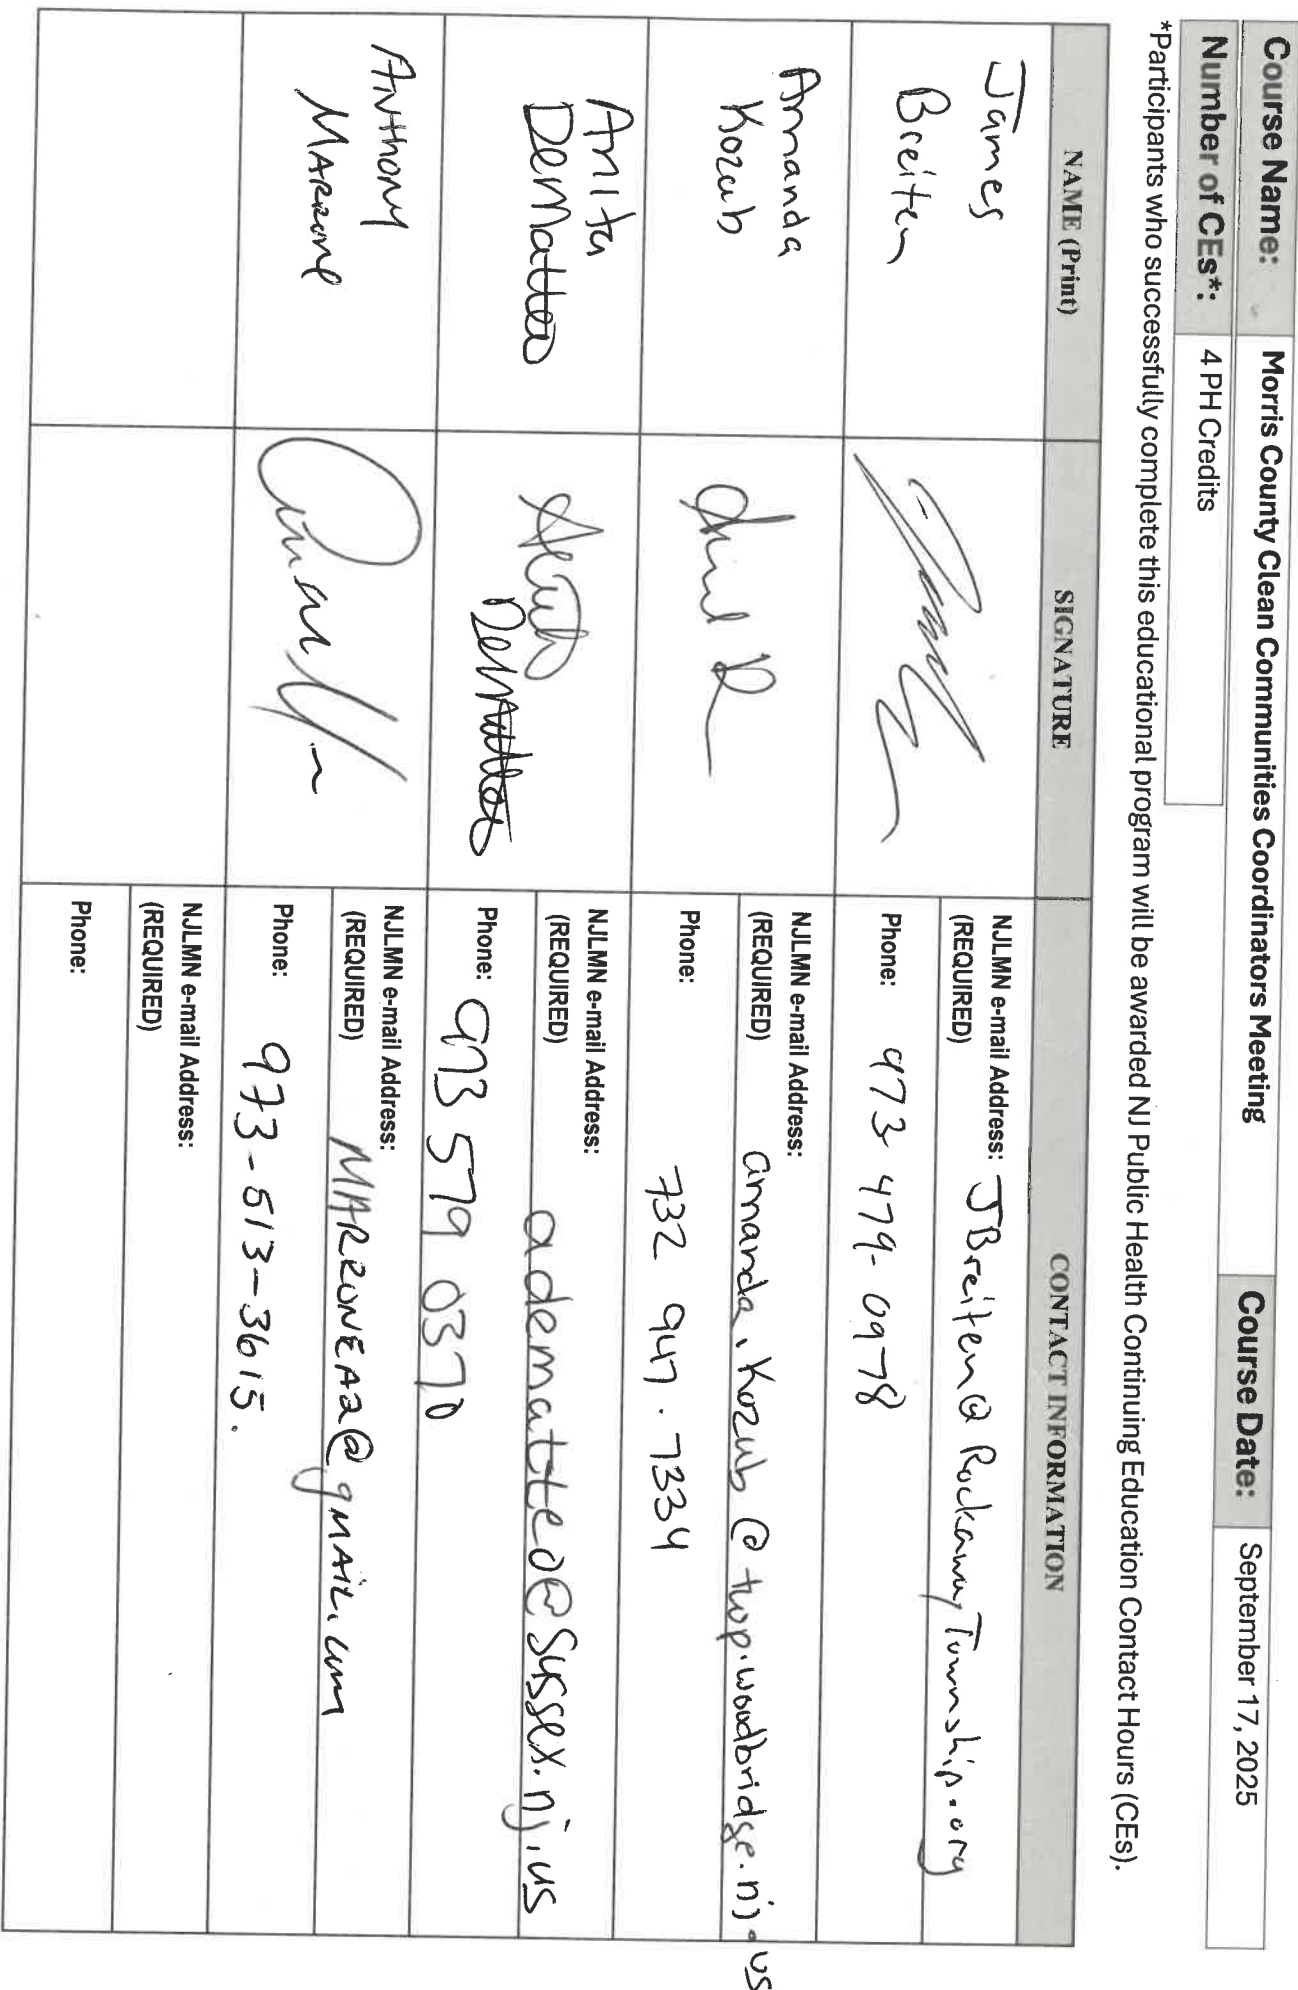 Course Name: Morris County Clean Communities Coordinators Meeting Course Date: September 17, 2025
Number of CEs*: 4 PH Credits
*Participants who successfully complete this educational program will be awarded NJ Public Health Continuing Education Contact Hours (CEs).
NAME (Print) SIGNATURE CONTACT INFORMATION
James
Breiten
NJLMN e-mail Address: JBreiten@RockawayTownship.org
(REQUIRED)
Phone: 973-479-0978
Amanda
Kozub
NJLMN e-mail Address:
(REQUIRED) amanda.kozub@twp.woodbridge.nj.us
Phone: 732 947.7334
Anita
DeMatteo
DeMatteo
NJLMN e-mail Address:
(REQUIRED) adematteo@sussex.nj.us
Phone: 973 579 0370
ANTHONY
MARRONE
NJLMN e-mail Address:
(REQUIRED) MARRONEA2@gmail.com
Phone: 973-513-3615.
NJLMN e-mail Address:
(REQUIRED)
Phone: